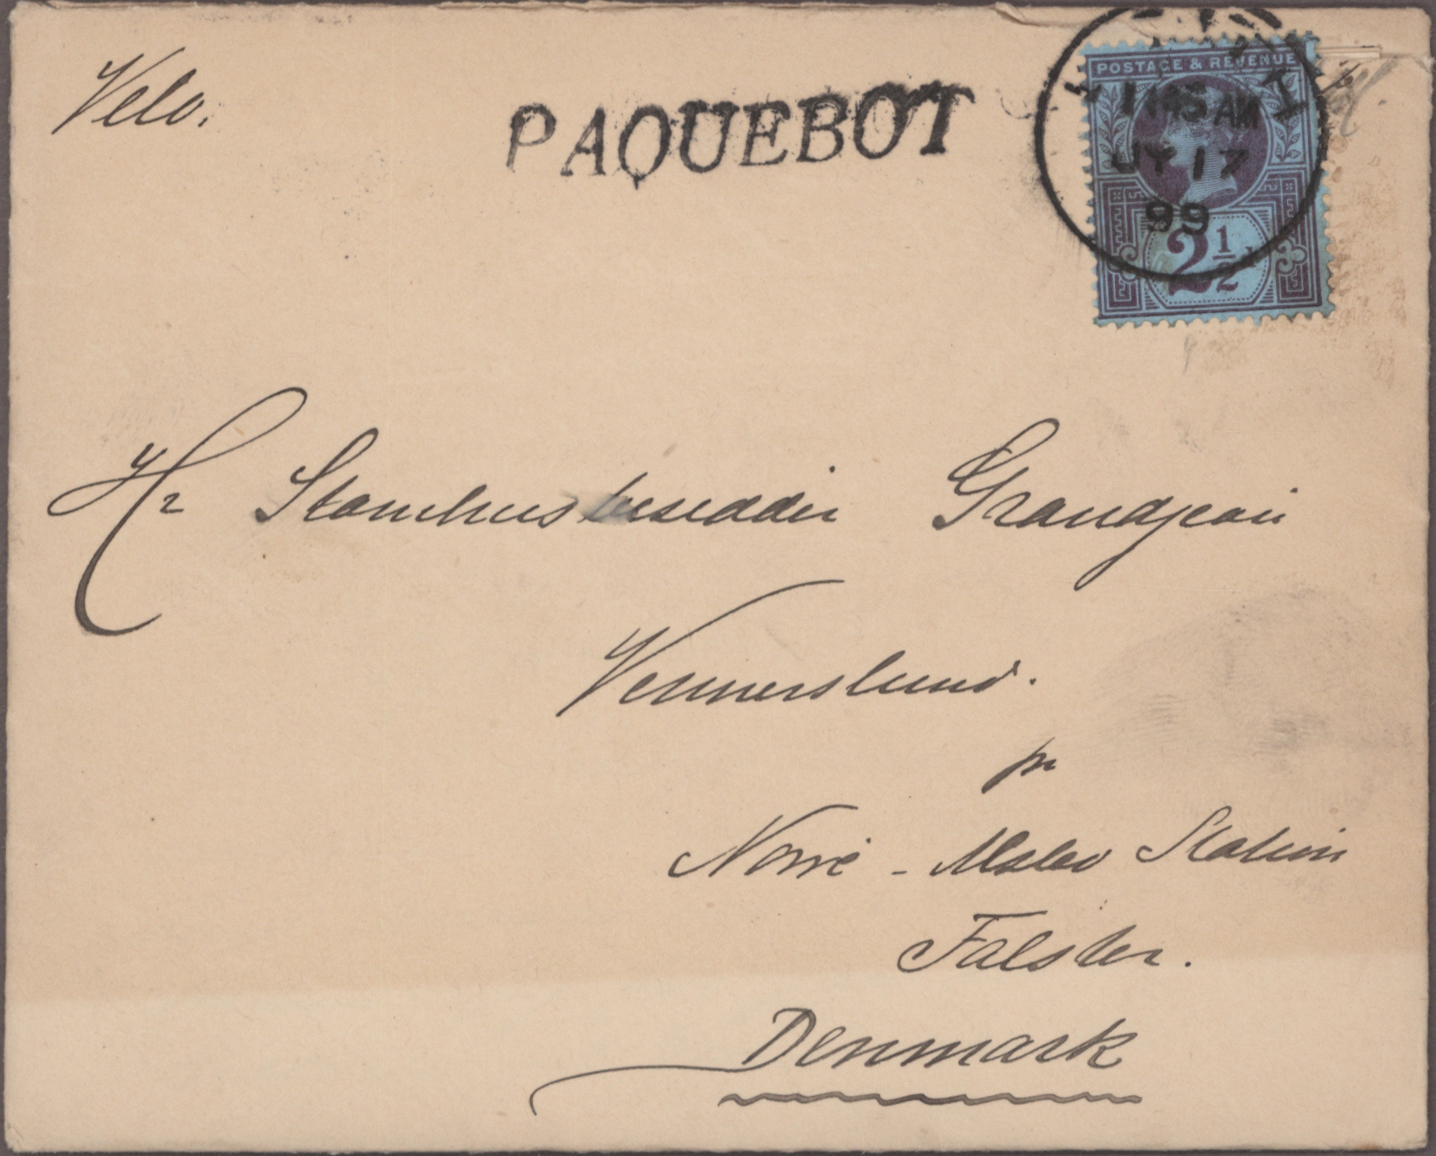 Velo.
PAQUEBOT
POSTAGE & REVENUE
11 45 AM
JY 17
99
2 1/2 d
Hr Stamhusbesidder Grandjean
Vennerslund.
pr
Norre - Alslev Station
Falster.
Denmark